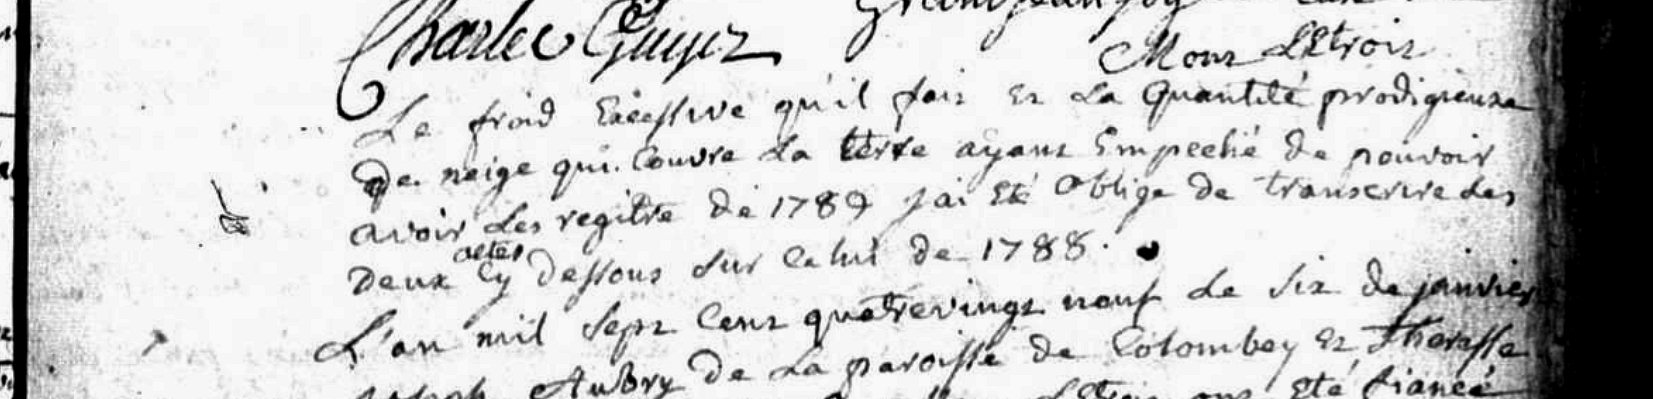 Charle Guyot
Mons Létroit
Le froid Excessive qu'il fait Et La Quantité prodigieuse
De neige qui Couvre La terre ayant Empeché De pouvoir
avoir Les registre De 1789 jai Eté Obligé de transcrire Les
Deux actes Cy Dessous sur Celui de 1788.
L'an mil Sept Cent quatrevingt neuf Le Six De janvier
Joseph Aubry De La paroisse De Colombey Et Theresse
ont Eté fiancé